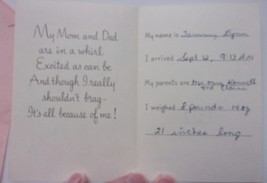 My Mom and Dad
are in a whirl
Excited as can be
And though I really
shouldn't brag-
It's all because of me!
My name is Tammy
I arrived Sept 12, 9:12 A.M.
My parents are
and
I weighed 8 pounds 14 oz
21 inches long